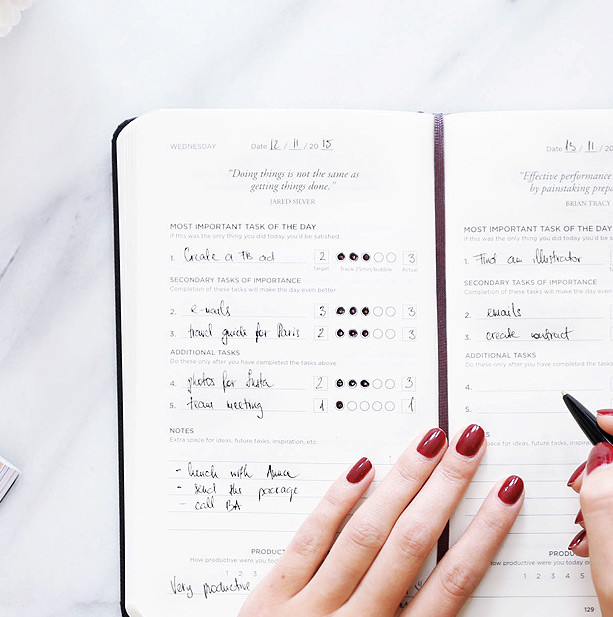 WEDNESDAY Date 12 / 11 / 20 15
"Doing things is not the same as
getting things done."
JARED SILVER
MOST IMPORTANT TASK OF THE DAY
If this was the only thing you did today, you'd be satisfied.
1. Create a FB ad 2 3
Target Track 25min/bubble Actual
SECONDARY TASKS OF IMPORTANCE
Completion of these tasks will make the day even better
2. e-mails 3 3
3. travel guide for Paris 2 3
ADDITIONAL TASKS
Do these only after you have completed the tasks above
4. photos for Insta 2 3
5. team meeting 1 1
NOTES
Extra space for ideas, future tasks, inspiration, etc.
- lunch with Anna
- send the package
- call BA
PRODU
How productive were you today
1 2 3
Very productive
Date 13 / 11 /
"Effective performance
by painstaking prepa
BRIAN TRACY
MOST IMPORTANT TASK OF THE DAY
If this was the only thing you did today you'd
1. Find an illustrator
SECONDARY TASKS OF IMPORTANCE
Completion of these tasks will make the day even
2. emails
3. create contract
ADDITIONAL TASKS
Do these only after you have completed the tasks
4.
5.
space for ideas, future tasks, inspiration
PRODU
How productive were you today
1 2 3 4 5
129